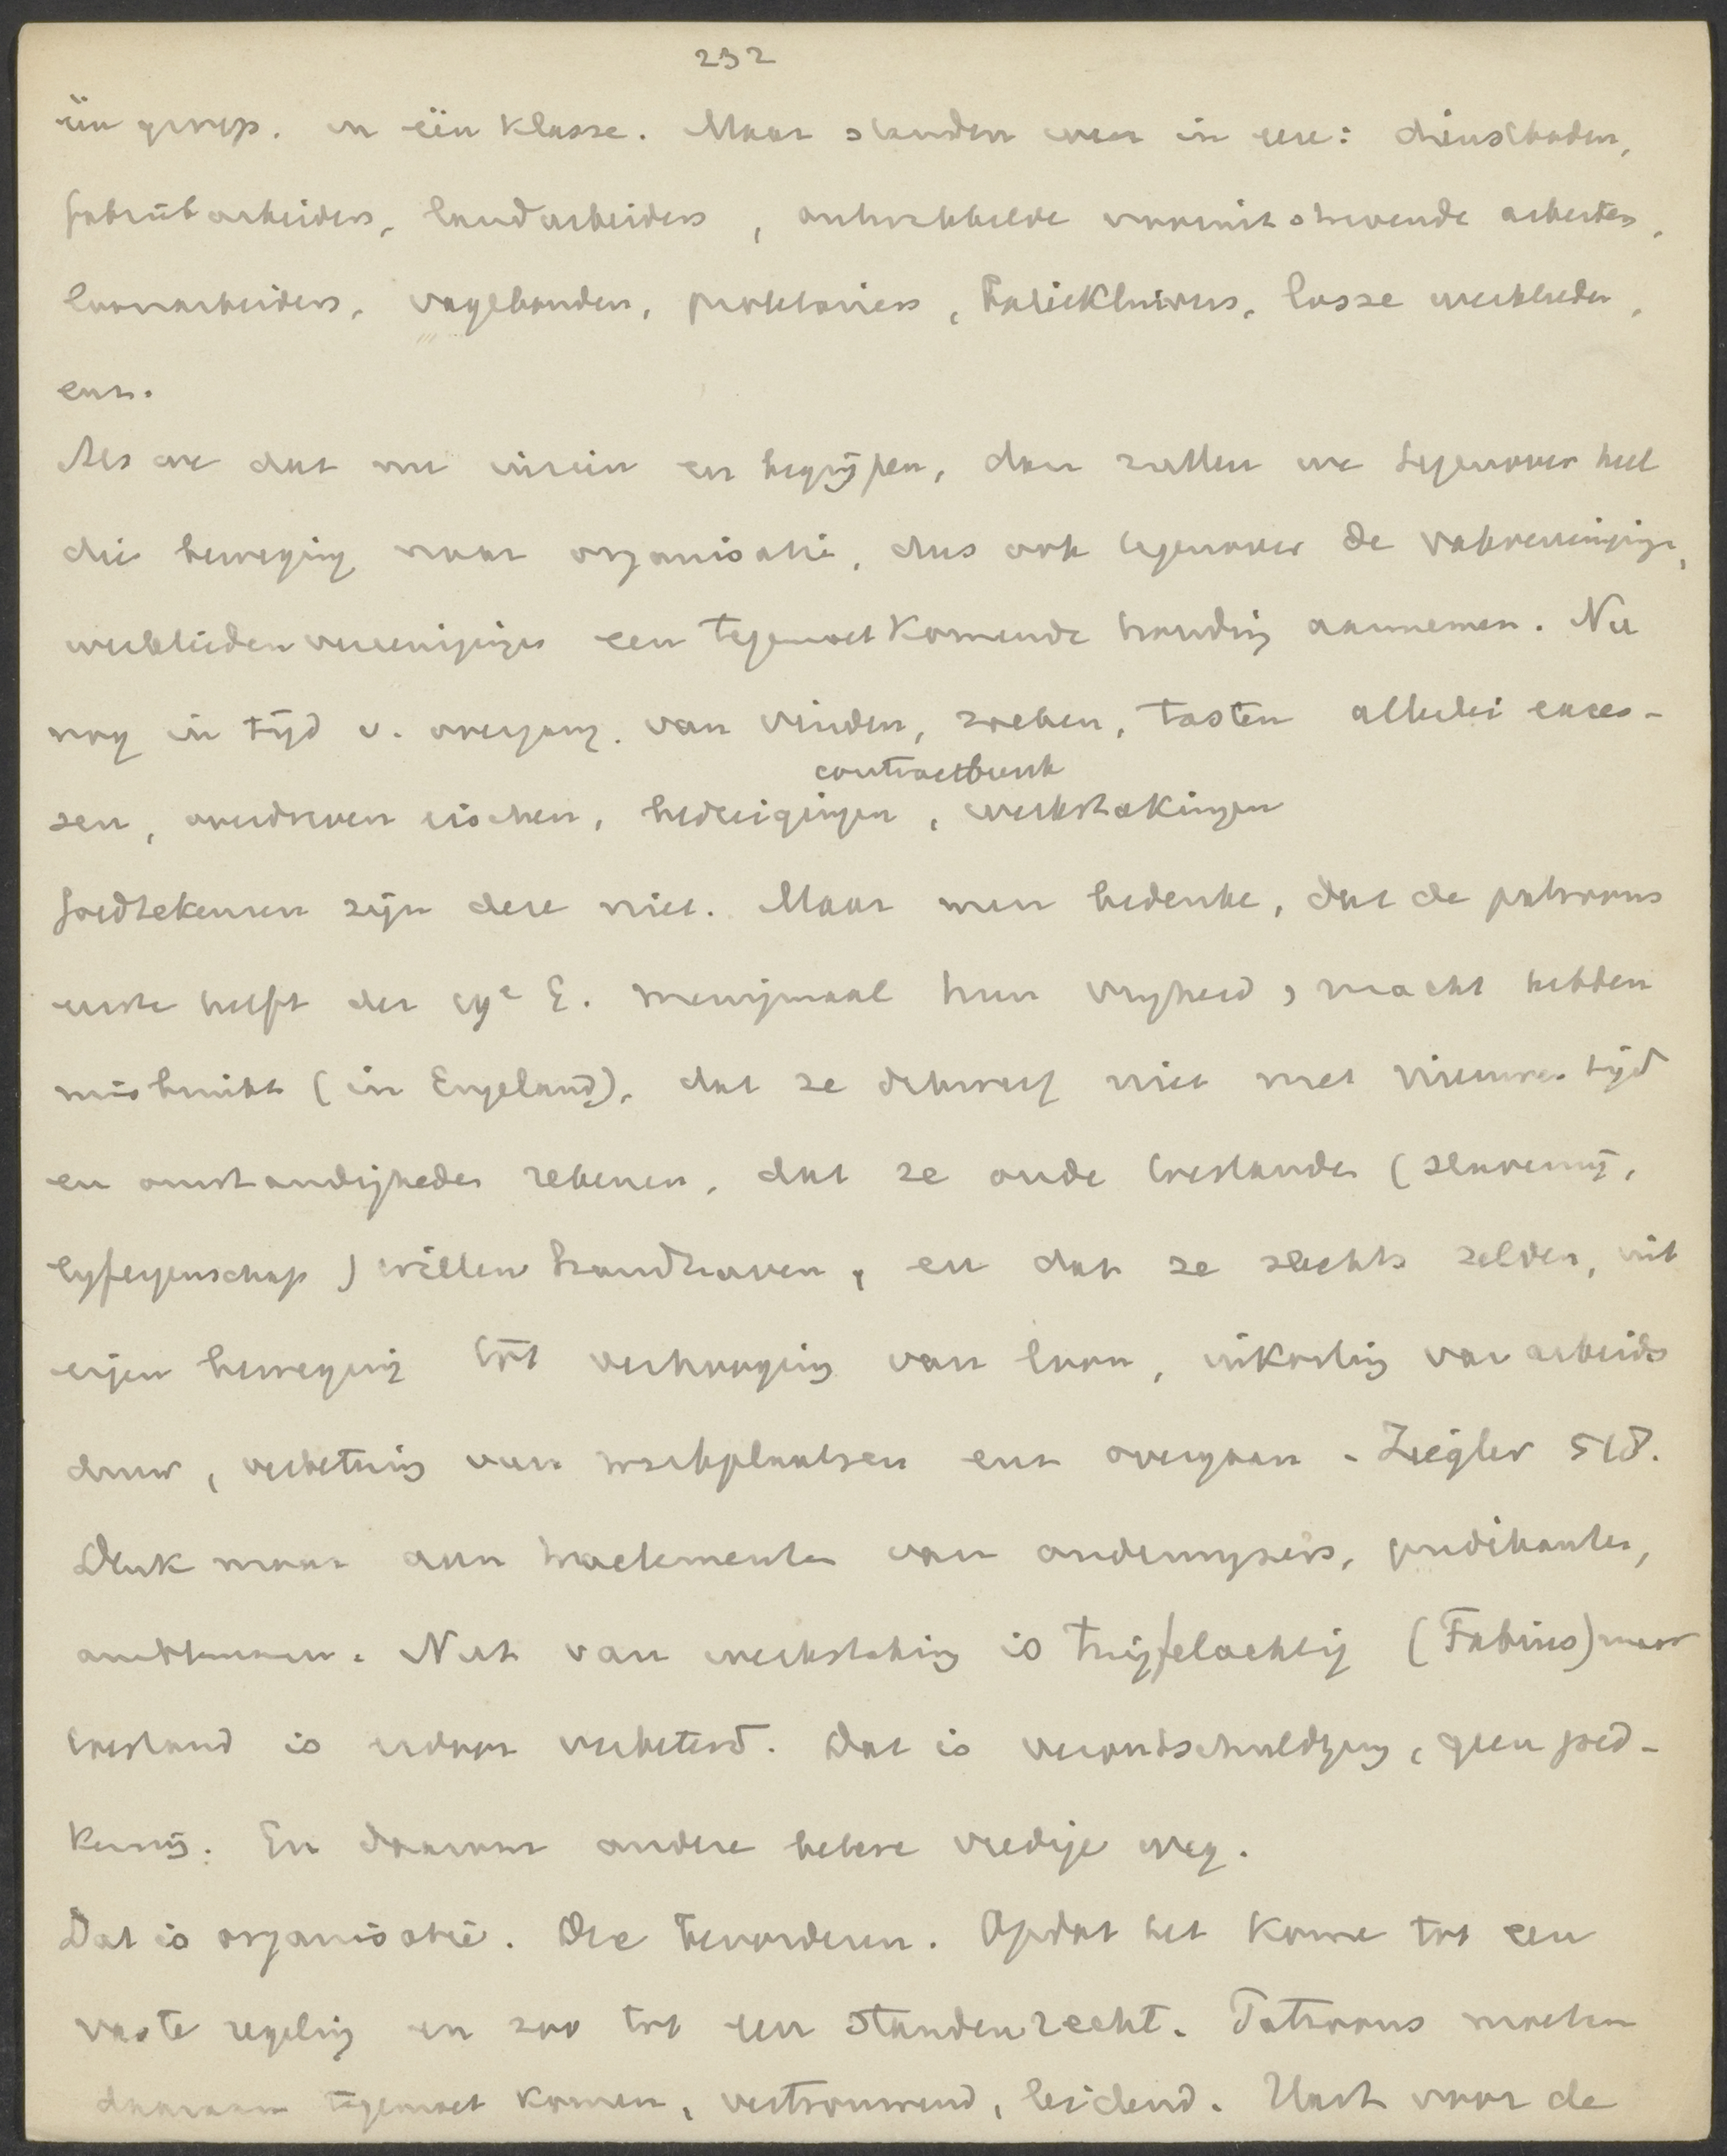 232
één groep. en één klasse. Maar standen weer in eere: dienstboden,
fabriekarbeiders, landarbeiders, ontwikkelde vooruitstrevende arbeiders,
loonarbeiders, vagebonden, proletariers, losse werklieden,
enz.
Als we dat nu inzien en begrijpen, dan zullen we tegenover heel
die beweging naar organisatie, dus ook tegenover de vakvereeniging,
werkliedenvereenigingen een tegemoetkomende houding aannemen. Nu
nog in tijd v. overgang. van vinden, zoeken, tasten allerlei exces-
sen, overdreven eischen, bedreigingen, contractbreuk werkstakingen
Goedtekeuren zijn deze niet. Maar men bedenke, dat de patroons
eerste helft der 19e E. menigmaal hun vrijheid, macht hebben
misbruikt (in Engeland), dat ze dikwerf niet met nieuwe tijd
en omstandigheden rekenen, dat ze oude toestanden (slavernij,
lijfeigenschap) willen handhaven, en dat ze slechts zelden, uit
eigen beweging tot verhooging van loon, inkorting van arbeids
duur, verbetering van werkplaatsen enz overgaan - Ziegler 518.
Denk maar aan tractementen van onderwijzers, predikanten,
ambtenaren. Nut van werkstaking is twijfelachtig (Fabius) maar
toestand is erdoor verbeterd. Dat is verontschuldiging, geen goed-
keuring. En daarom andere betere vredige weg.
Dat is organisatie. Die bevorderen. Opdat het kome tot een
vaste regeling en zoo tot een standenrecht. Patroons moeten
daaraan tegemoet komen, vertrouwend, leidend. Want voor de